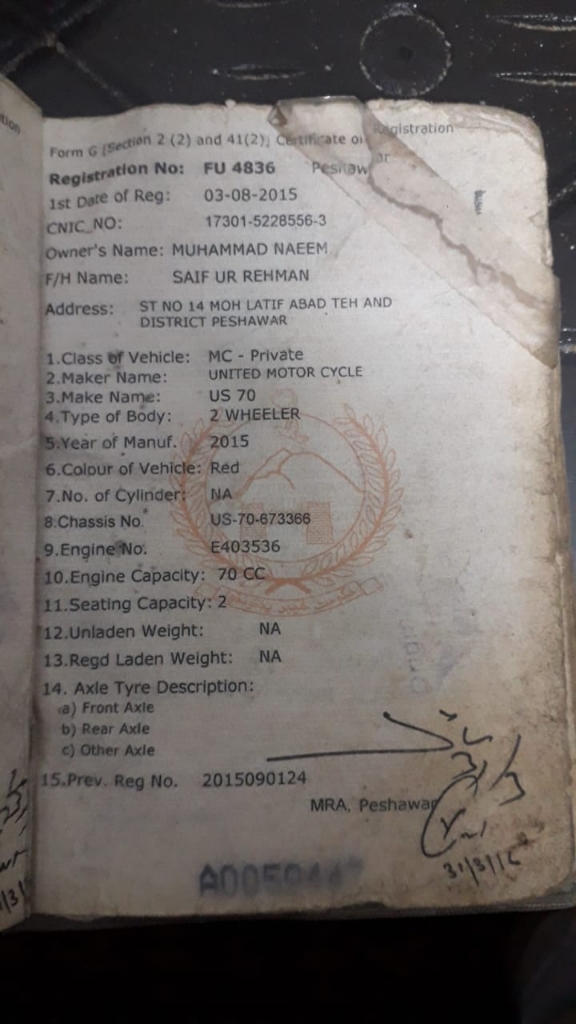 Form G [Section 2 (2) and 41(2)] Certificate of Registration
Registration No: FU 4836 Peshawar
1st Date of Reg: 03-08-2015
CNIC_NO: 17301-5228556-3
Owner's Name: MUHAMMAD NAEEM
F/H Name: SAIF UR REHMAN
Address: ST NO 14 MOH LATIF ABAD TEH AND
DISTRICT PESHAWAR
1.Class of Vehicle: MC - Private
2.Maker Name: UNITED MOTOR CYCLE
3.Make Name: US 70
4.Type of Body: 2 WHEELER
5.Year of Manuf. 2015
6.Colour of Vehicle: Red
7.No. of Cylinder: NA
8.Chassis No. US-70-673366
9.Engine No. E403536
10.Engine Capacity: 70 CC
11.Seating Capacity: 2
12.Unladen Weight: NA
13.Regd Laden Weight: NA
14. Axle Tyre Description:
a) Front Axle
b) Rear Axle
c) Other Axle
15.Prev. Reg No. 2015090124
MRA, Peshawar